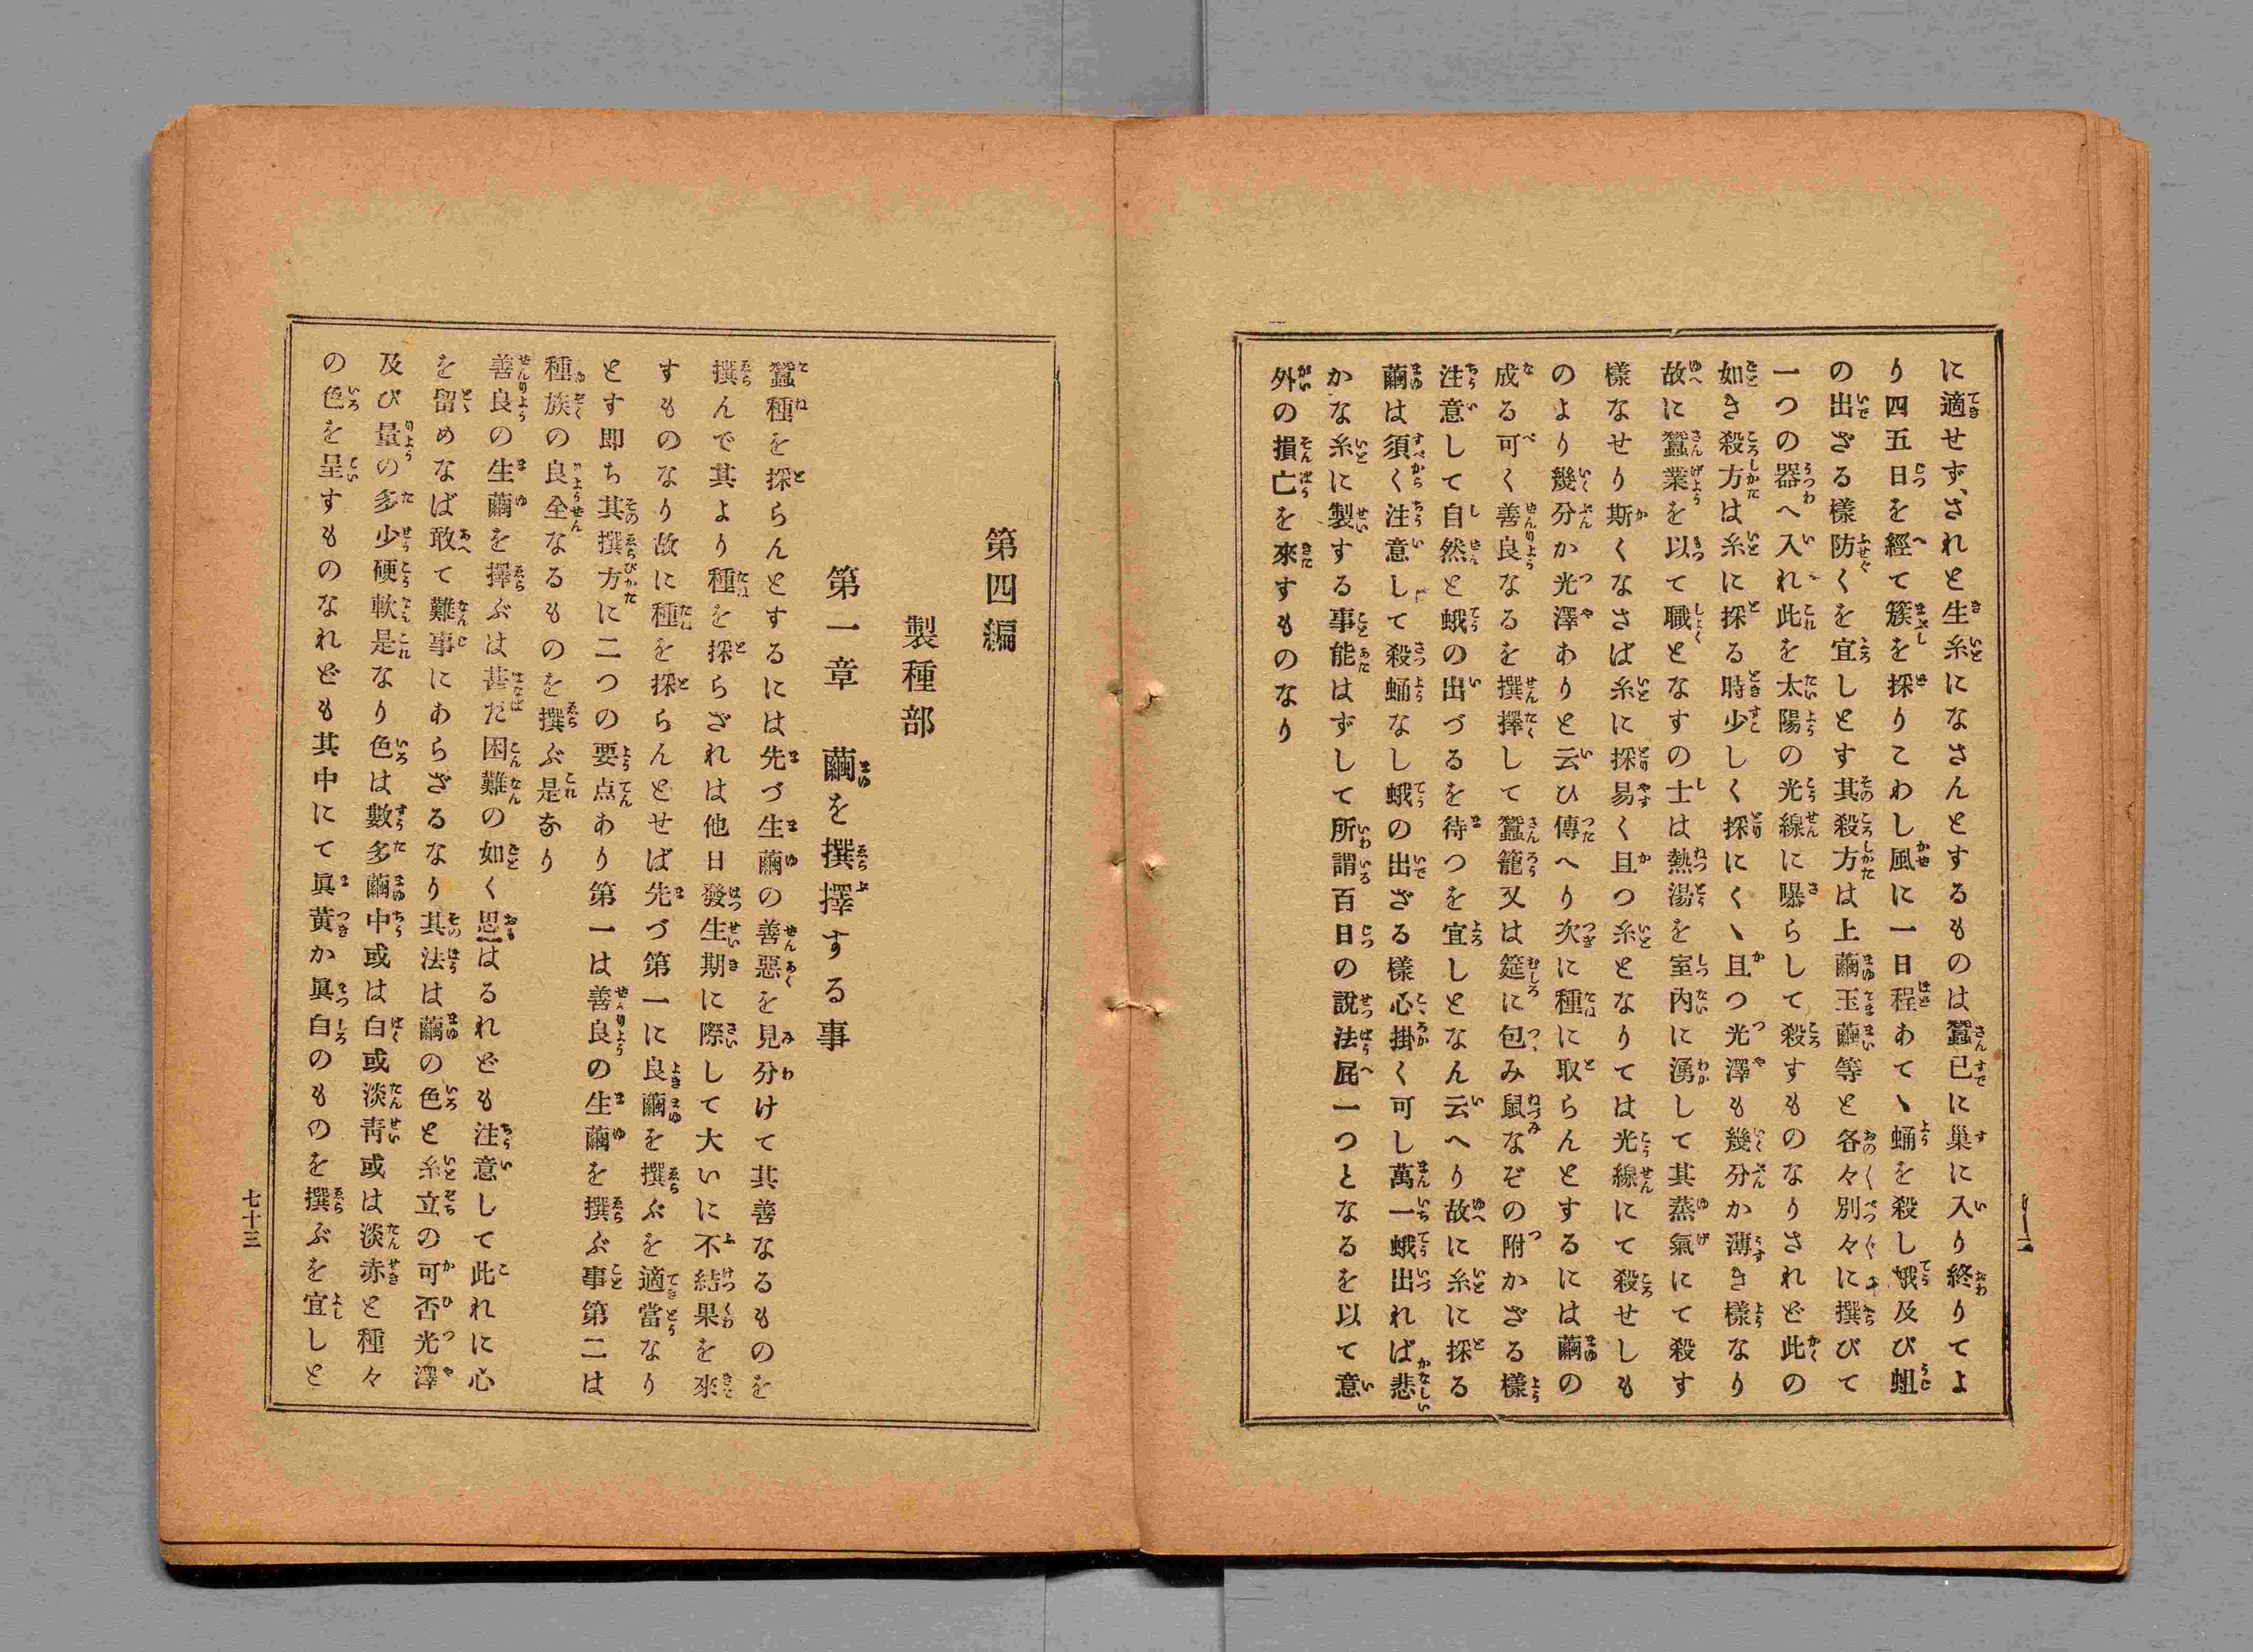 に適せず、されと生糸になさんとするものは蠶已に巢に入り終りてよ
り四五日を經て簇を採りこわし風に一日程あて、蛹を殺し蛾及び蛆
の出ざる樣防くを宜しとす其殺方は上繭玉繭等と各々別々に撰びて
一つの器へ入れ此を太陽の光線に曝らして殺すものなりされど此の
如き殺方は糸に採る時少しく採にくヽ且つ光澤も幾分か薄き樣なり
故に蠶業を以て職となすの士は熱湯を室内に湧して其蒸氣にて殺す
樣なせり斯くなさば糸に採易く且つ糸となりては光線にて殺せしも
のより幾分か光澤ありと云ひ傳へり次に種に取らんとするには繭の
成る可く善良なるを撰擇して蠶籠又は筵に包み鼠なぞの附かざる樣
注意して自然と蛾の出づるを待つを宜しとなん云へり故に糸に採る
繭は須く注意して殺蛹なし蛾の出ざる樣心掛く可し萬一蛾出れば悲
かな糸に製する事能はずして所謂百日の說法屁一つとなるを以て意
外の損亡を來すものなり
第四編
製種部
第一章 繭を撰擇する事
蠶種を採らんとするには先づ生繭の善惡を見分けて其善なるものを
撰んで其より種を採らざれは他日發生期に際して大いに不結果を來
すものなり故に種を採らんとせば先づ第一に良繭を撰ぶを適當なり
とす即ち其撰方に二つの要点あり第一は善良の生繭を撰ぶ事第二は
種族の良全なるものを撰ぶ是なり
善良の生繭を擇ぶは甚だ困難の如く思はるれども注意して此れに心
を留めなば敢て難事にあらざるなり其法は繭の色と糸立の可否光澤
及び量の多少硬軟是なり色は數多繭中或は白或淡靑或は淡赤と種々
の色を呈すものなれども其中にて眞黄か眞白のものを撰ぶを宜しと
七十三